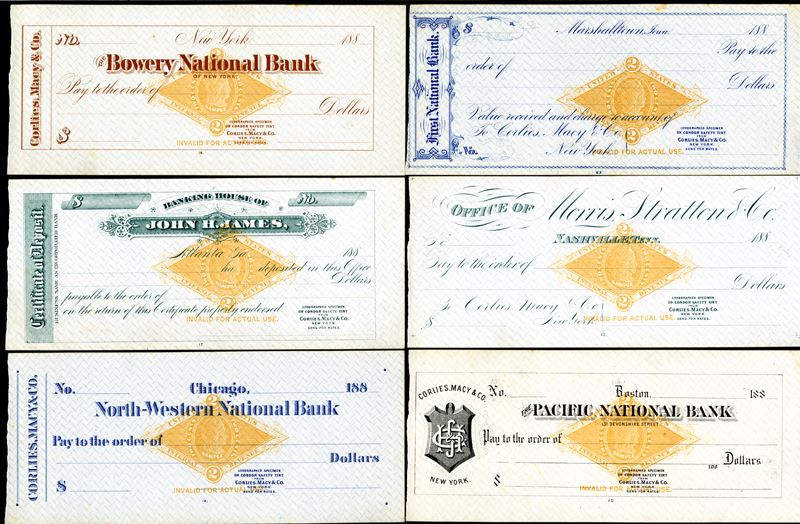 Corlies, Macy & Co.
No. New York 188
THE Bowery National Bank
OF NEW YORK.
Pay to the order of
Dollars
$
UNITED STATES
2
INTERNAL REVENUE
LITHOGRAPHED SPECIMEN
ON CONDOR SAFETY TINT
FROM
CORLIES, MACY & CO.
NEW YORK.
SEND FOR RATES.
INVALID FOR ACTUAL USE.
First National Bank.
$ Marshalltown, Iowa 188
Pay to the
order of
Dollars
Value received and charge to account of
To Corlies, Macy & Co.
No. New York
UNITED STATES
2
LITHOGRAPHED SPECIMEN
ON CONDOR SAFETY TINT
FROM
CORLIES, MACY & CO.
NEW YORK.
SEND FOR RATES.
INVALID FOR ACTUAL USE.
Certificate of Deposit.
$ BANKING HOUSE OF No.
JOHN H. JAMES,
Atlanta Ga. 188
ha deposited in this Office
Dollars
payable to the order of
on the return of this Certificate properly endorsed
2
LITHOGRAPHED SPECIMEN
ON CONDOR SAFETY TINT
FROM
CORLIES, MACY & CO.
NEW YORK.
SEND FOR RATES.
INVALID FOR ACTUAL USE.
17.
OFFICE OF Morris, Stratton & Co.
No. NASHVILLE, TENN. 188
Pay to the order of
Dollars
To Corlies Macy & Co.
$ New York
2
LITHOGRAPHED SPECIMEN
ON CONDOR SAFETY TINT
FROM
CORLIES, MACY & CO.
NEW YORK.
SEND FOR RATES.
INVALID FOR ACTUAL USE.
CORLIES, MACY & CO.
No. Chicago, 188
North-Western National Bank
Pay to the order of
Dollars
$
2
LITHOGRAPHED SPECIMEN
ON CONDOR SAFETY TINT
FROM
CORLIES, MACY & CO.
NEW YORK.
SEND FOR RATES.
INVALID FOR ACTUAL USE.
CORLIES, MACY & CO.
NEW YORK.
No. Boston, 188
THE PACIFIC NATIONAL BANK
131 DEVONSHIRE STREET.
Pay to the order of
100 Dollars
$
2
LITHOGRAPHED SPECIMEN
ON CONDOR SAFETY TINT
FROM
CORLIES, MACY & CO.
NEW YORK.
SEND FOR RATES.
INVALID FOR ACTUAL USE.